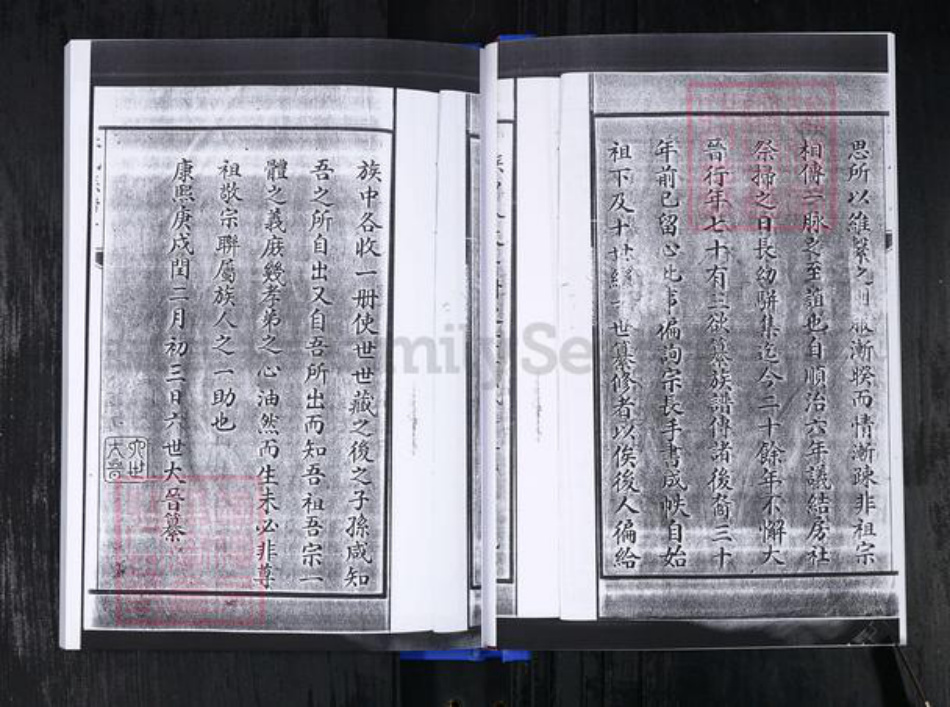 思所以維繫之 服漸暌而情漸疎非祖宗
相傳一脉之至誼也自順治六年議結房社
祭掃之日長幼駢集迄今二十餘年不懈大
晉行年七十有三欲纂族譜傳諸後裔三十
年前已留心此事徧詢宗長手書成帙自始
祖下及十世 世纂修者以俟後人徧給
族中各收一册使世世藏之後之子孫咸知
吾之所自出又自吾所出而知吾祖吾宗一
體之義庶幾孝弟之心油然而生未必非尊
祖敬宗聯屬族人之一助也
康熙庚戌閏二月初三日六世大晉纂
六世
大晉